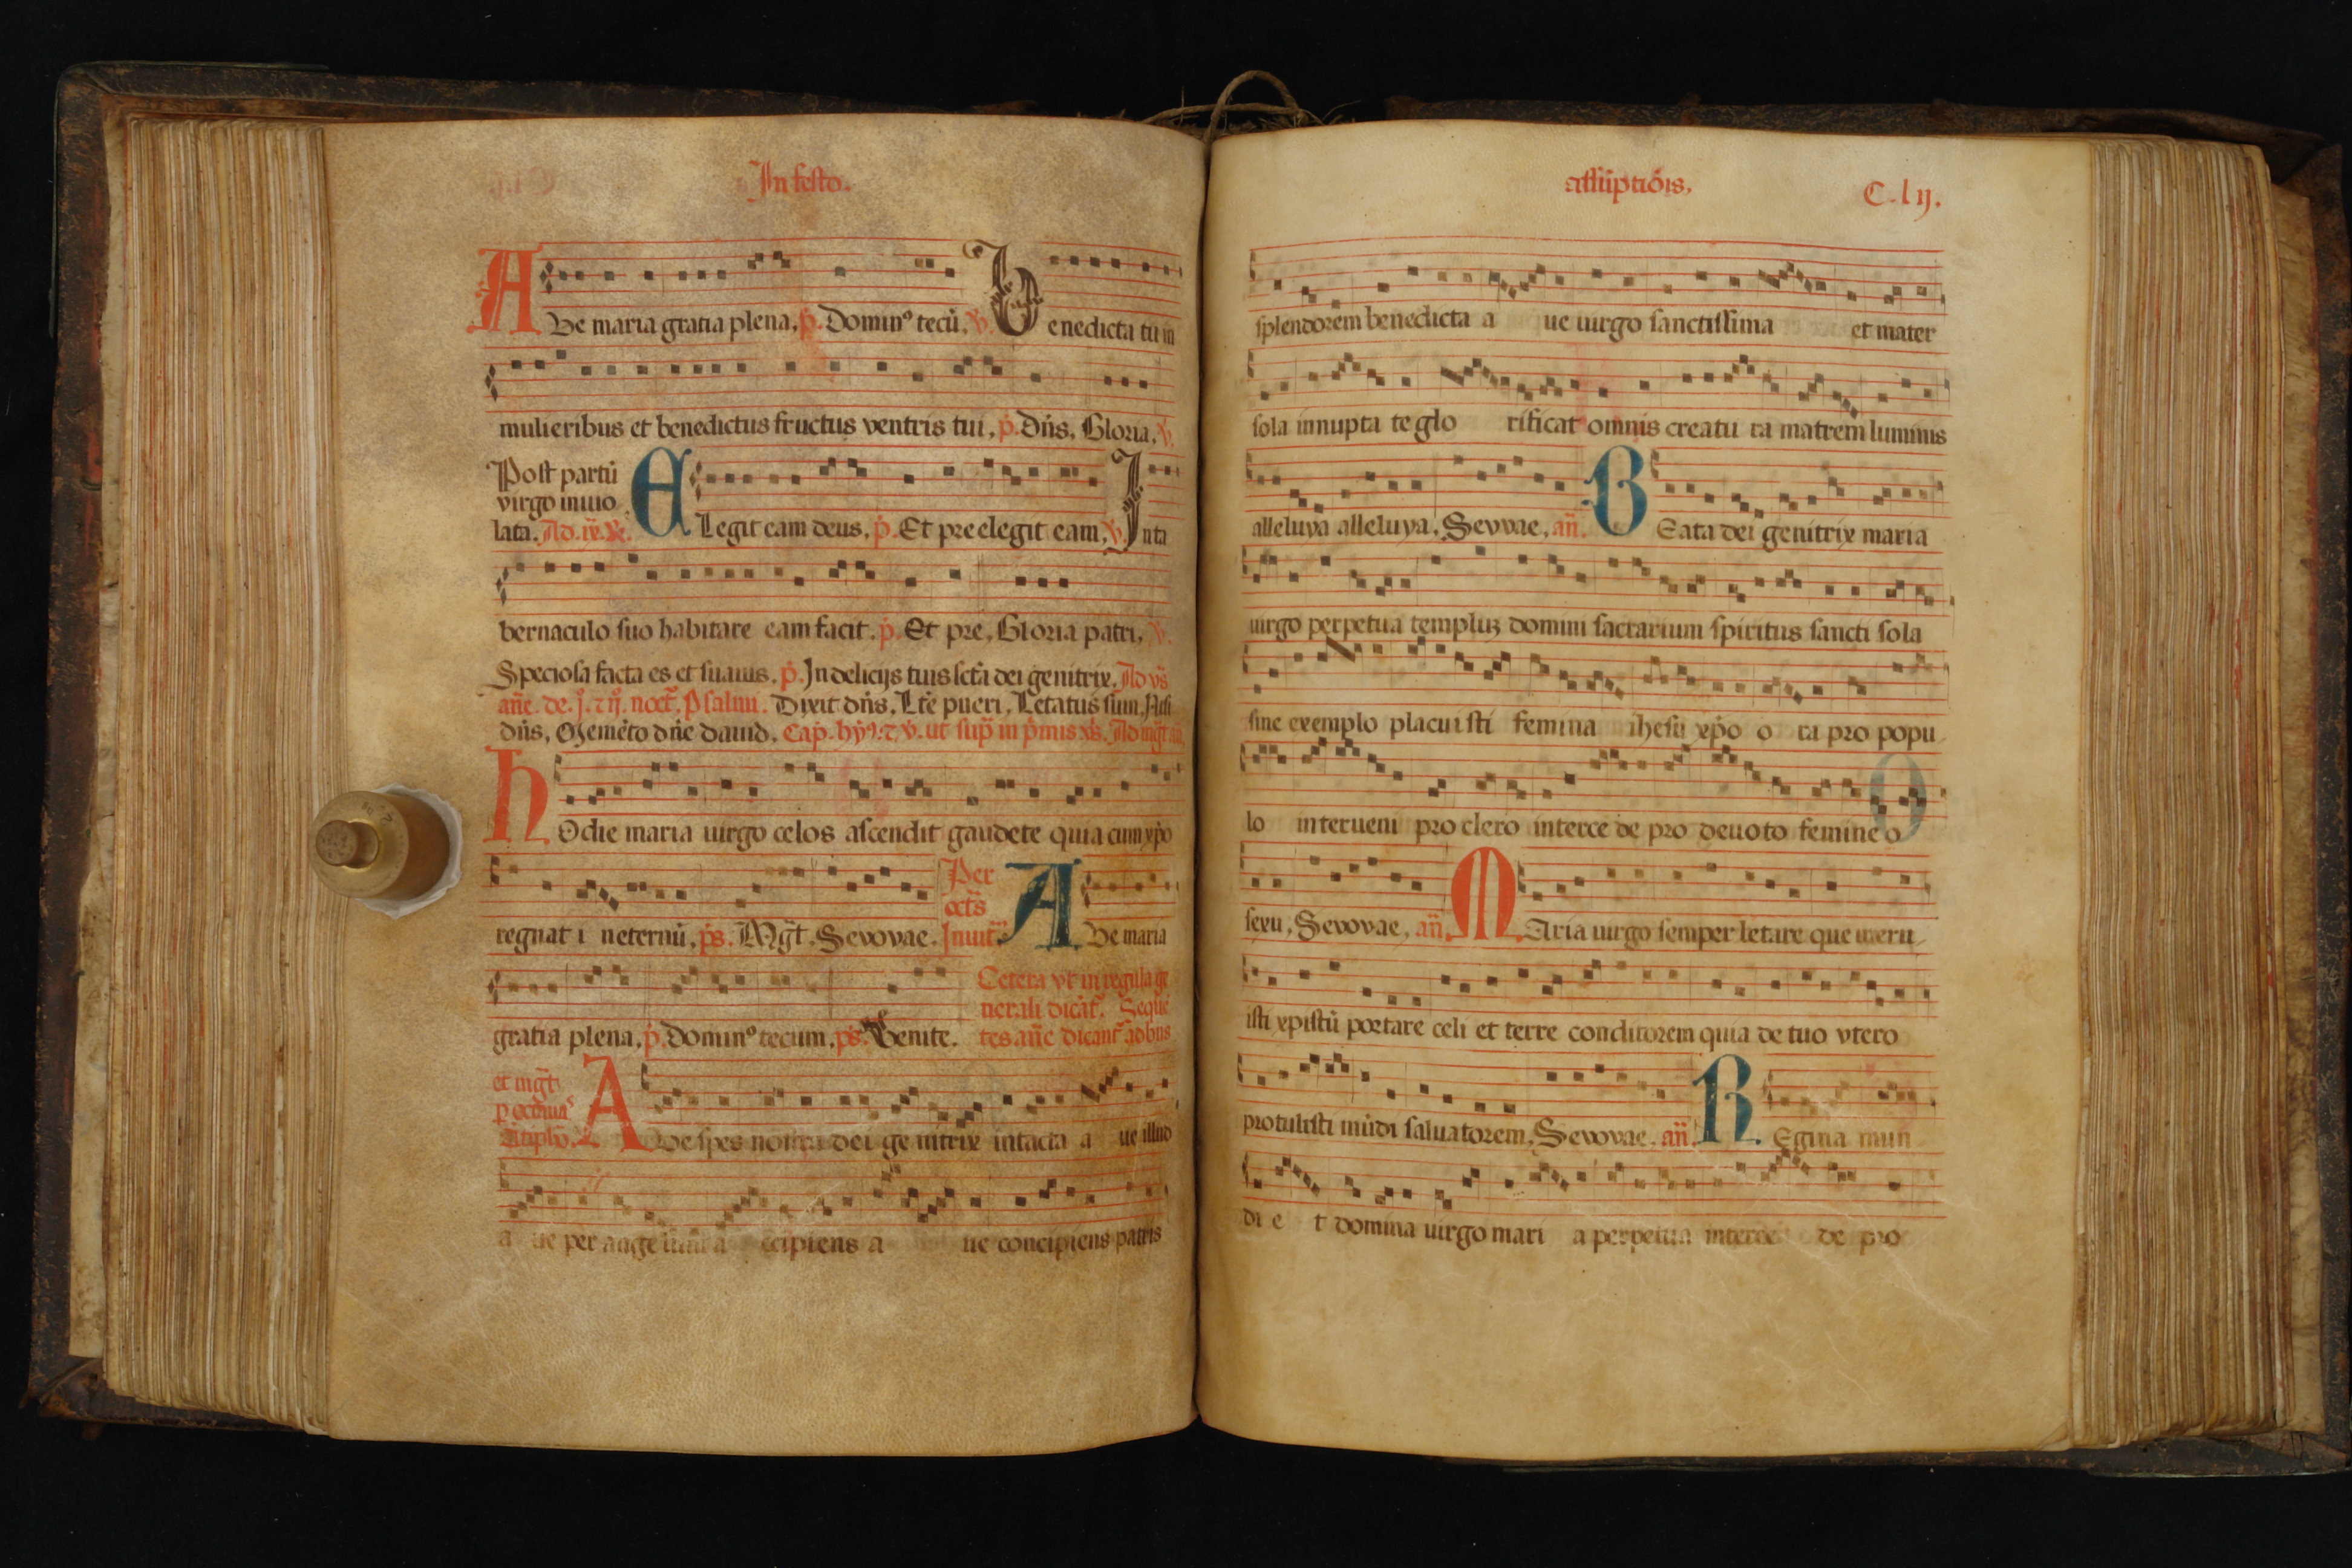 In festo.
AUe maria gratia plena, p̃. Dominꝰ tecũ, ℣. Benedicta tu in
mulieribus et benedictus fructus ventris tui, p̃. Dñs, Gloria, ℣.
Post partũ
virgo inuio
lata. Ad .ix. ELegit eam deus, p̃. Et preelegit eam, ℣. Inta
bernaculo suo habitare eam facit, p̃. Et pre, Gloria patri, ℣.
Speciosa facta es et suauis, p̃. In delicijs tuis sctã dei genitrix, Ad vs̃
añe. de. j. ⁊ ij. noct̃. Psalmi. Dixit dñs, Ltẽ pueri, Letatus sum, Nisi
dñs, Memẽto dñe dauid, Cap̃. hỹꝰ. ⁊ ℣. ut sup̃ in p̃mis vs̃. Ad mg̃t añ.
HOdie maria uirgo celos ascendit gaudete quia cum xp̃o
Per
oct̃s
regnat i neternũ, ps̃. Mg̃t, Sevovae. Inuit̃. AUe maria
Cetera vt in regula ge
nerali dicãt̃. Sequẽ
gratia plena, p̃. Dominꝰ tecum, ps̃. Venite. tes añe dicant̃ ad bñs
et mg̃t
AUe spes nostra dei ge nitrix intacta a ue illud
a ue per ange ccipiens a ue concipiens patris
assũptiõis,
C. l ij.
splendorem benedicta a ue uirgo sanctissima et mater
sola innupta te glo rificat omnis creatu ra matrem luminis
alleluya alleluya, Sevvae, añ. BEata dei genitrix maria
uirgo perpetua templuꝫ domini sacrarium spiritus sancti sola
sine exemplo placuisti femina ihesu xp̃o o ra pro popu
lo interueni pro clero interce de pro deuoto femine o
sexu, Sevovae, añ. MAria uirgo semper letare que meru
isti xpistũ portare celi et terre conditorem quia de tuo vtero
protulisti mũdi saluatorem, Sevovae, añ. REgina mun
di e t domina uirgo mari a perpetua interce de pro